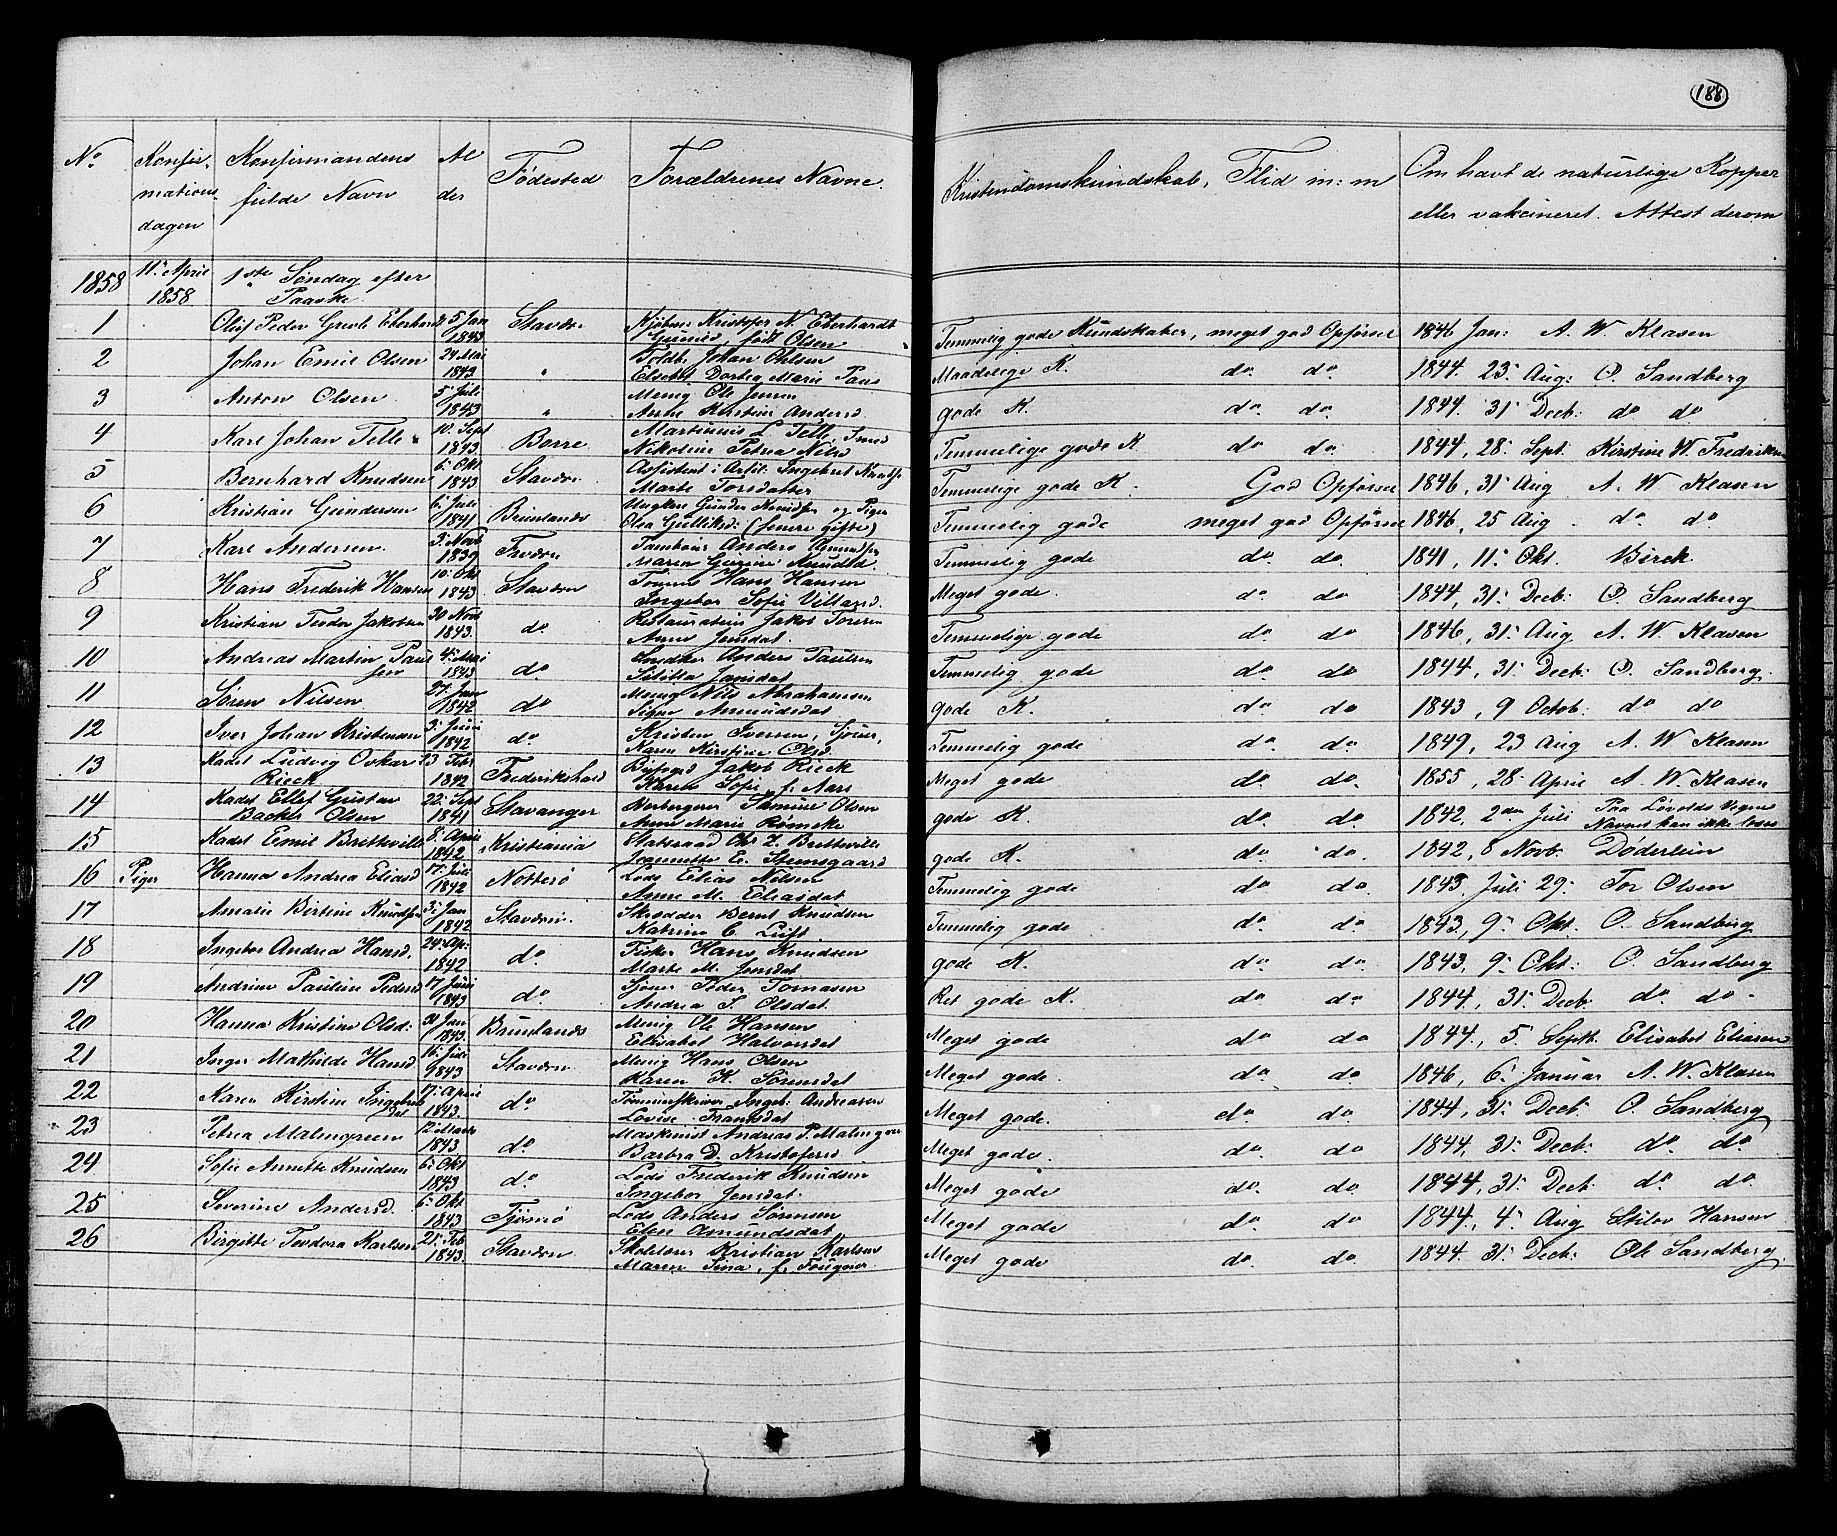 188
No Konfir- Konfirmandens Al Fødested Forældrenes Navne. Kristendomskundskab, Flid m: m Om havt de naturlige Kopper
mations- fulde Navn der eller vakcineret. Attest derom
dagen
1858 11: April 1ste Søndag efter
1858 Paaske
1 Oluf Peder Eberhardt 5 Jan Stavørn Kristofer N. Eberhardt Temmelig gode Kundskaber, meget god Opførsel 1846 Jan: A. W Klasen
1843 født Olsen
2 Johan Emil Olsen 24 Mai " Toldb. Johan Ohlsen Maadelige K. do do. 1844. 23. Aug: O. Sandberg
1843 Elsebet Dortea Marie Paus
3 Anton Olsen 5 Juli " Menig Ole Jensen gode K. do do. 1844. 31 Decb: do do
1843 Anne Kirstine Andersd
4 Karl Johan Telle 10. Sept Borre Martinus L. Telle, Smed Temmelige gode K do do. 1844, 28. Sept. Kirstine W. Fredriksen
1843 Nikoline Petrea Nilsd
5 Bernhard Knudsen 6. Okt Stavørn Assistent i Artil. Ingebret Knudsen Temmelige gode K. God Opførsel 1846, 31 Aug A. W Klasen
1843 Marte Torsdatter
6 Kristian Gundersen 6. Juli Brunlands Ungkarl Gunder Knudsen og Pige Temmelig gode meget god Opførsel 1846, 25 Aug - do. do
1841 Olea Gulliksd: (senere gifte)
7 Karl Andersen. 3. Novb Tambour Anders Amundsen Temmelig gode do do. 1841, 11. Okt. Birch
1839 Maren Gurine Knudsd.
8 Hans Frederik Hansen 10. Okt Stavørn Tømm Hans Hansen Meget gode. do. do 1844, 31. Decb: O. Sandberg
1843 Ingebor Sofie
9 Kristian Teodor Jakobsen 30 Novb do. Restauratius Jakob Toresen Temmelige gode do do. 1846, 31. Aug A. W. Klasen
1843. Anne Jensdat.
10 Andreas Martin Paul 4. Mai do Snedker Anders Paulsen Temmelig gode do. do 1844, 31. Decb: O. Sandberg.
sen 1843 Jansdat
11 Søren Nilsen 27. Jan do Menig Nils Abrahamsen gode K. do. do. 1843, 9 Octob: do do
1842 Signe Amundsdat
12 Iver Johan Kristensen 3. Juni do. Kristen Iversen, Sjøm, Temmelig gode do. do. 1849, 23 Aug A. W Klasen
1842 Karen Kirstine Olsd.
13 Kadet Ludvig Oskar 13 Feb: Frederikshald Byfoged Jakob Rieck Meget gode do. do. 1855, 28. April A. W. Klasen
Rieck 1842 Karen Sofie f. Aars
14 Kadet Ellef Gustav 22. Sept Stavanger Herbergerer Samuel Olsen gode K. do. do. 1842, 2den Juli Paa Løvolds Vegne
Backer Olsen 1841 Anne Marie Rømcke Navnet kan ikke læses
15 Kadet Emil Bretteville 8. April Kristiania Statsraad Chr. Z. Bretteville gode K. do. do. 1842, 8 Novb. Døderlein
1842 Jeannette E. Steensgaard
16 Piger Hanna Andrea Eliasd 17. Juli Nøtterø Lods Elias Nilsen Temmelig gode do. do. 1843, Juli 29. Tor Olsen
1842 Anne M. Eliasdat
17 Amalie Birtine Knudsen 3. Jan Stavørn. Skrædder Bernt Knudsen Temmelig gode do. do. 1843, 9. Okt. O. Sandberg
1842 Katrine C. Luft
18 Ingebor Andrea Hansd. 24. Ap. do. Fisker Hans Knudsen gode K. do. do. 1843, 9. Okt: O. Sandberg
1842 Marte M. Jensdat
19 Andrine Pauline Pedersd 17 Juni do. Sjøm: Peder Tomasen Ret gode K. do do. 1844, 31. Decb do do-
1843 Andrea S. Olsdat.
20 Hanna Kristine Olsd: Jan Brunlands Menig Ole Hansen Meget gode do do. 1844, 5. Septb. Elisabet Eliasen
1843. Elisabet Halvorsdat
21 Inger Mathilde Hansd. 16. Juli Stavørn Menig Hans Olsen Meget gode. do. do. 1846, 6. Januar A. W. Klasen
1843 Karen K. Sørensdat
22 Karen Kirstine Ingebrets 17. April do. Tømmerskriver Ingeb. Andreasen Meget gode. do do. 1844, 31. Decb: O. Sandberg
dat 1843. Lovise Fransdat
23 Petrea Malmgreen 12 Marts do. Maskinist Andreas P. Malmgreen Meget gode. do. do. 1844, 31. Decb: do. do.
1843 Barbra D. Kristofersd
24 Sofie Annette Knudsen 6. Okt do. Lods Frederik Knudsen Meget gode do. do. 1844, 31. Decb do do.
1843 Ingebor Jensdat.
25 Severine Andersd. 6. Okt Tjømø Lods Anders Sørensen Meget gode do. do. 1844, 4. Aug Hansen
1843. Else Amundsdat
26 Birgitte Teodora Karlsen 21. Feb Stavørn. Skolelærer Kristian Karlsen Meget gode do. do. 1844. 31. Decb: Ole Sandberg.
1843. Maren Tina, f.